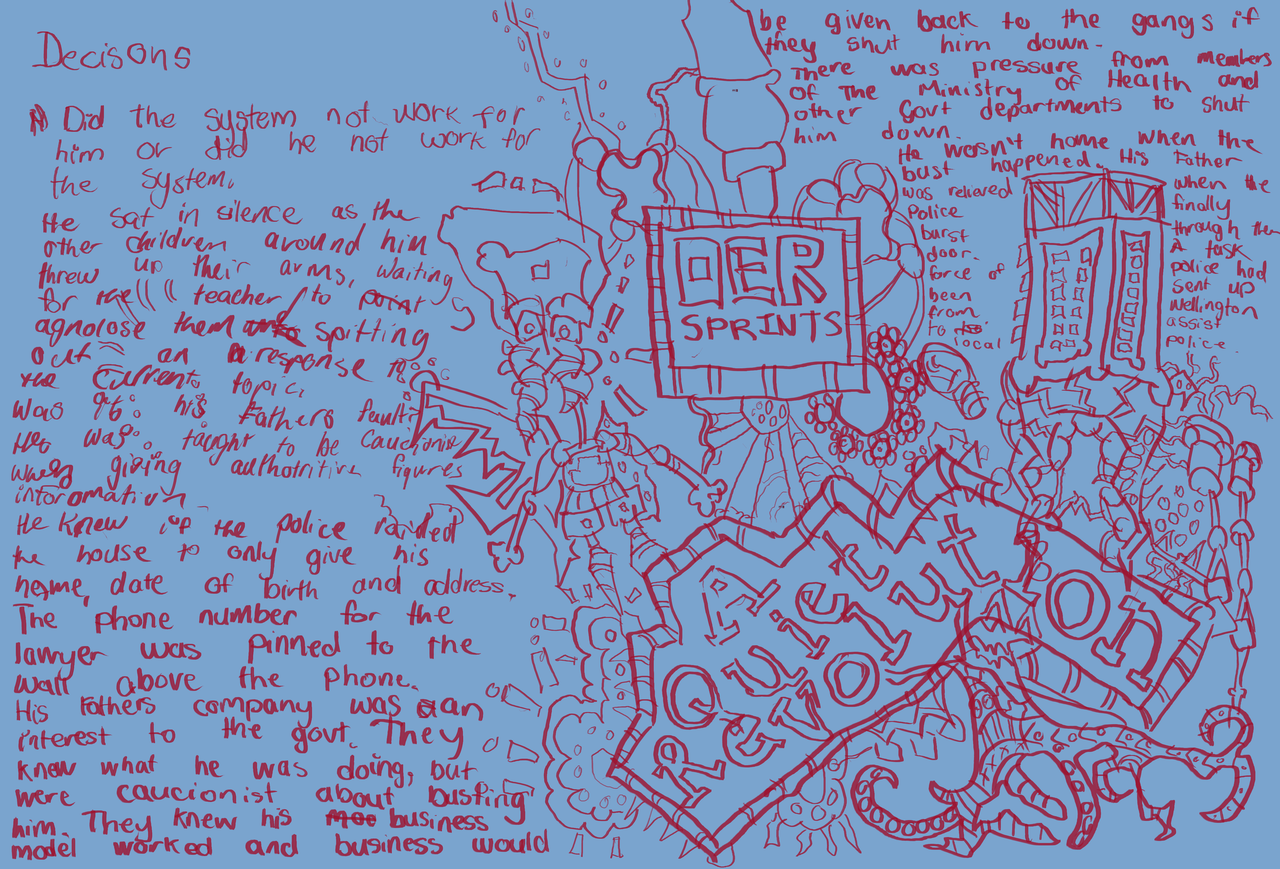 Decisons
Did the system not work for
him or did he not work for
the system.
He sat in silence as the
other children around him
threw up their arms, waiting
for the teacher to point
agnolose them spitting
out an response to
the current topic.
Was it his fathers fault
He was taught to be caucionie
whey giving authotritive figures
informativ
He knew if the police raided
the house to only give his
name, date of birth and address.
The phone number for the
lawyer was pinned to the
wall above the phone.
His fathers company was an
interest to the govt. They
knew what he was doing, but
were caucionist about busting
him. They knew his business
model worked and business would
be given back to the gangs if
they shut him down.
There was pressure from members
of The Ministry of Health and
other Govt departments to shut
him down.
He wasn't home when the
bust happened. His Father
was relieved when the
Police finally
burst through the
door. A task
force of police had
been sent up
from Wellington
to assist
local police.
DER
SPRINTS
Quiet
Revolution